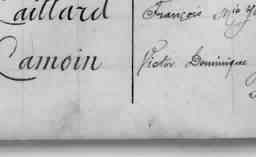 Caillard François
Camoin Victor Dominique